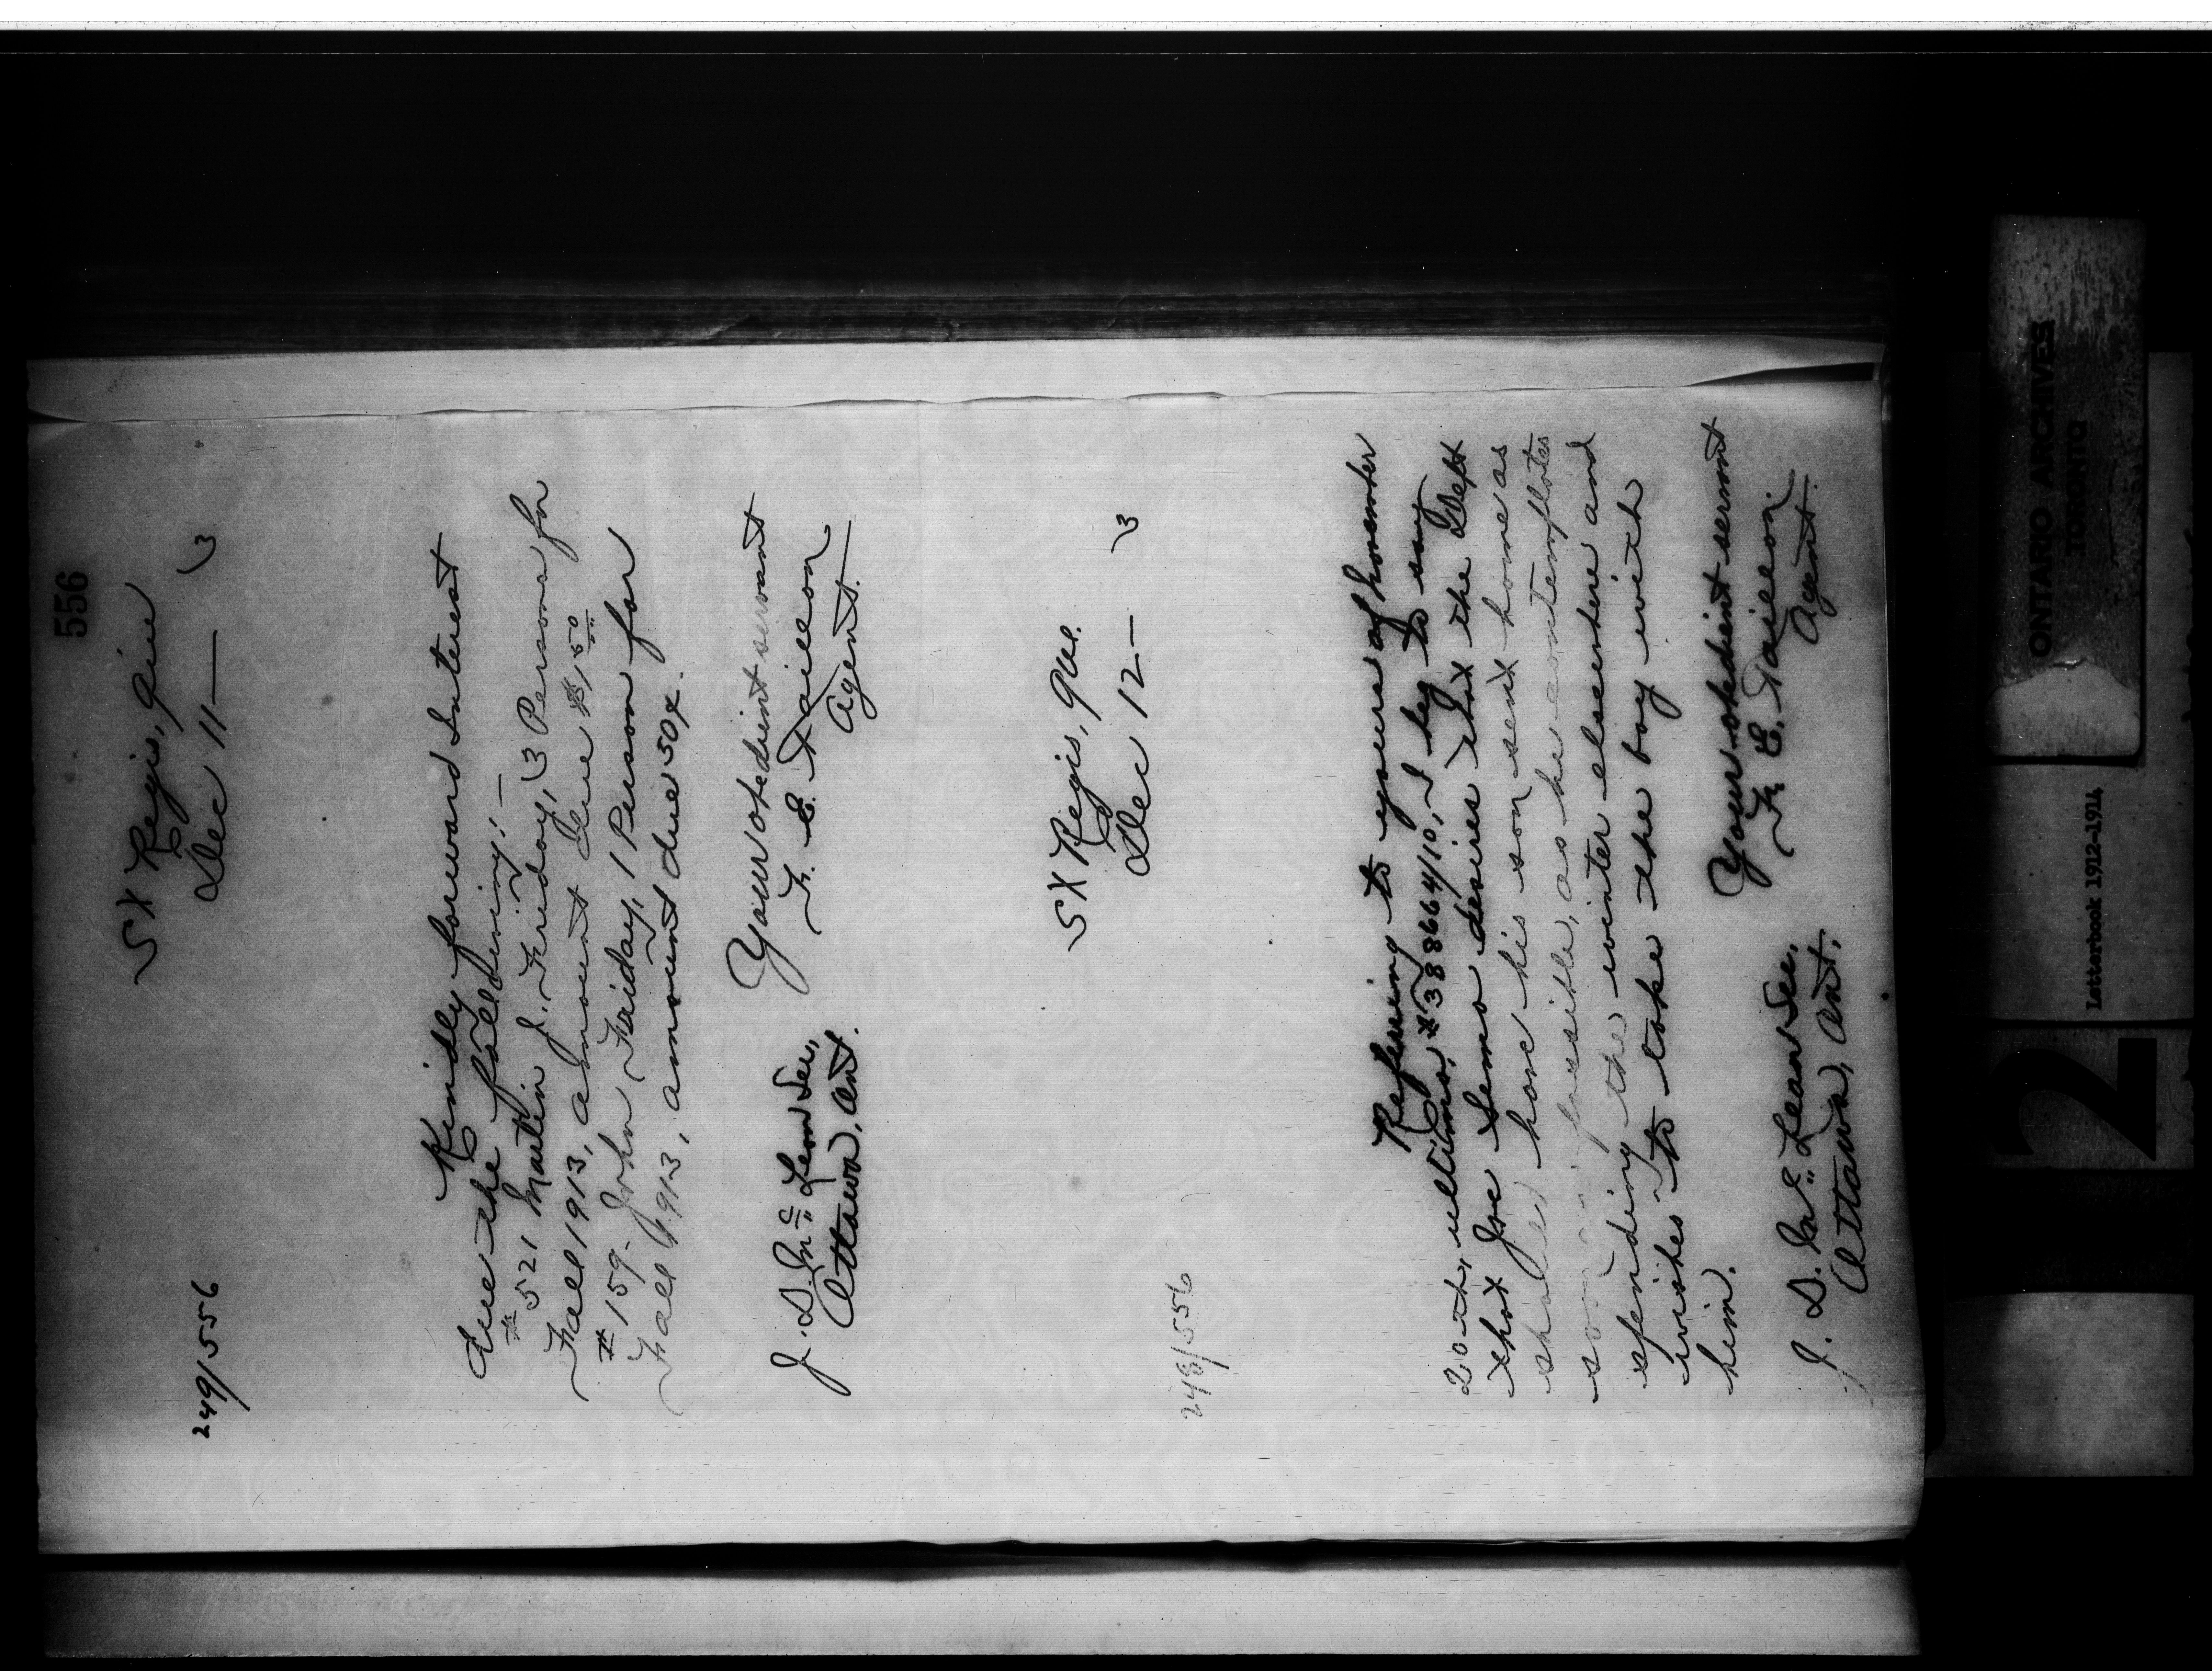 556
St Regis, Que
Dec 11— 3
249/556
Kindly forward Interest
due the following:—
# 521 Martin J. Friday, 3 Persons for
Fall 1913, amount due $1.50
# 159- John Friday, 1 Person for
Fall 1913, amount due 50¢.
Your obedient servant
F. E. Taillon
Agent.
J. D. McLean Sec,
Ottawa, Ont.
St Regis, Que.
Dec 12— 3
248/556
Referring to yours of November
20th, ultimo, #388664/10, I beg to say
that Joe desires that the Dept
should have his son sent home as
soon as possible, as he contemplates
spending the winter elsewhere and
wishes to take the boy with
him.
Your obedient servant
F. E. Taillon
Agent
J. D. McLean Sec,
Ottawa, Ont.
ONTARIO ARCHIVES
TORONTO
Letterbook 1912-1914
2